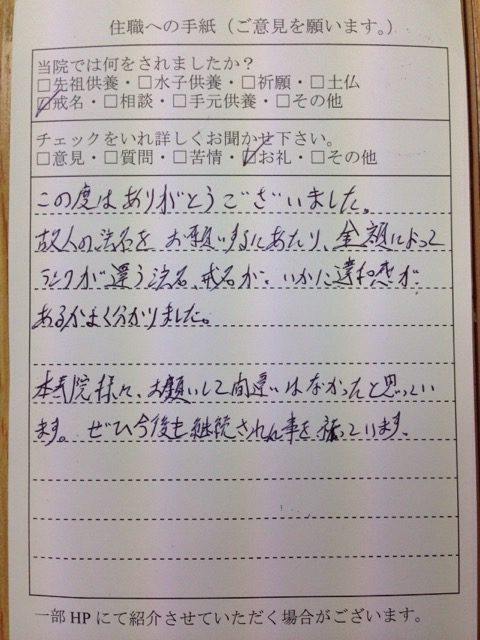 住職への手紙（ご意見を願います。）
当院では何をされましたか？
□先祖供養・□水子供養・□祈願・□土仏
☑戒名・□相談・□手元供養・□その他
チェックをいれ詳しくお聞かせ下さい。
□意見・□質問・□苦情・☑お礼・□その他
この度はありがとうございました。
故人の法名を お願いするにあたり、金額によって
ランクが違う法名、戒名が、いかに違和感が
あるかよく分かりました。
本寿院様に、お願いして間違いはなかったと思ってい
ます。ぜひ今後も継続されん事を 祈っています、
一部HPにて紹介させていただく場合がございます。